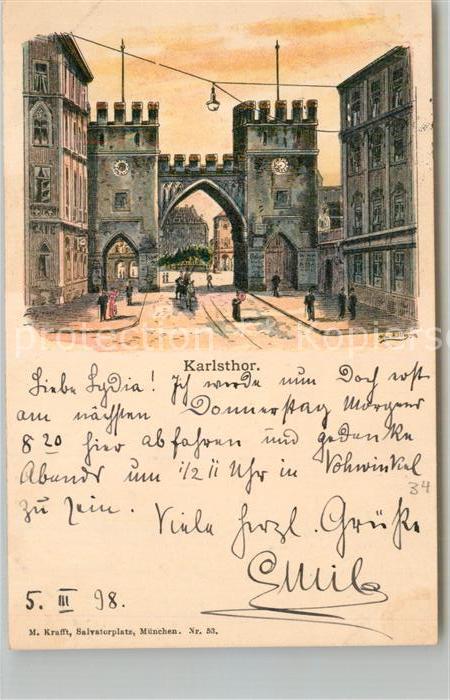 Karlsthor.
Liebe Lydia! Ich werde nun doch erst
am nächsten Donnerstag Morgens
8 20 hier abfahren und gedenke
Abends um 1/2 11 Uhr in Vohwinkel
zu sein. Viele herzl. Grüße
Emil
5. III 98.
34
M. Krafft, Salvatorplatz, München. Nr. 53.